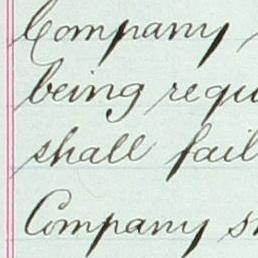 Company
being requ
shall fail
Company s